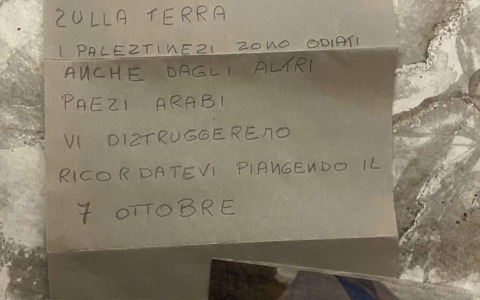 ZULLA TERRA
I PALEZTINEZI ZONO ODIATI
ANCHE DAGLI ALTRI
PAEZI ARABI
VI DIZTRUGGEREMO
RICORDATEVI PIANGENDO IL
7 OTTOBRE